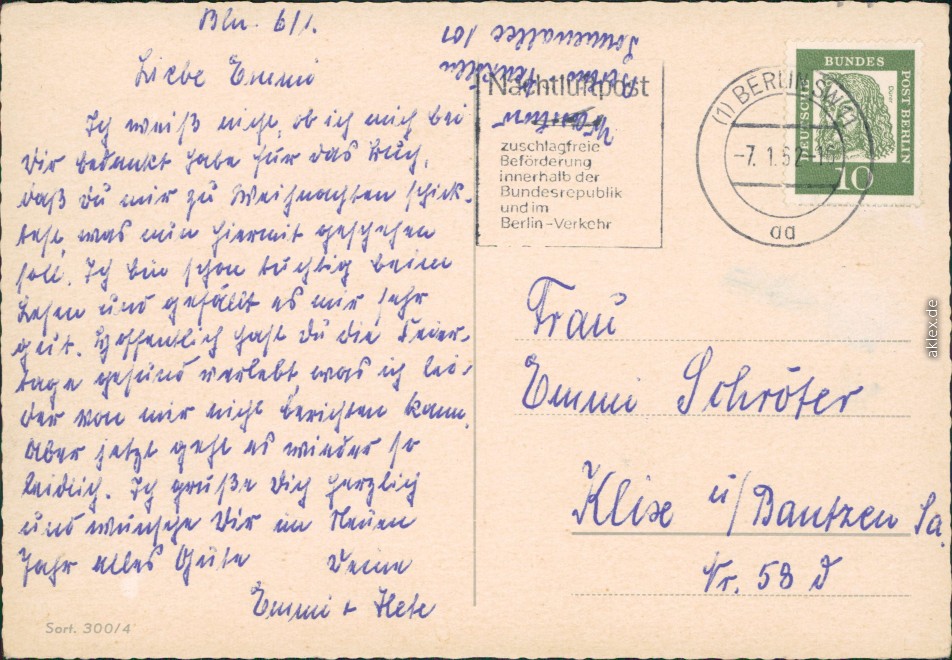 Bln. 6/1.
Liebe Emmi
Ich weiß nicht, ob ich mich bei
Dir bedankt habe für das Buch,
daß du mir zu Weihnachten schick-
test, was nun hiermit geschehen
soll. Ich bin schon tüchtig beim
Lesen und gefällt es mir sehr
gut. Hoffentlich hast Du die Feier-
tage gesund verlebt, was ich lei-
der von mir nicht berichten kann.
Aber jetzt geht es wieder so
leidlich. Ich grüße Dich herzlich
und wünsche Dir im Neuen
Jahr alles Gute Deine
Emmi + Hete
Sort. 300/4
Berlin Neukölln
Sonnenallee 101
Nachtluftpost
zuschlagfreie
Beförderung
innerhalb der
Bundesrepublik
und im
Berlin-Verkehr
(1) BERLIN SW 11
-7. 1. 62-16
aa
DEUTSCHE BUNDESPOST BERLIN
Dürer
10
Frau
Emmi Schröter
Klix ü/Bautzen Sa.
Nr. 58 d
aklex.de